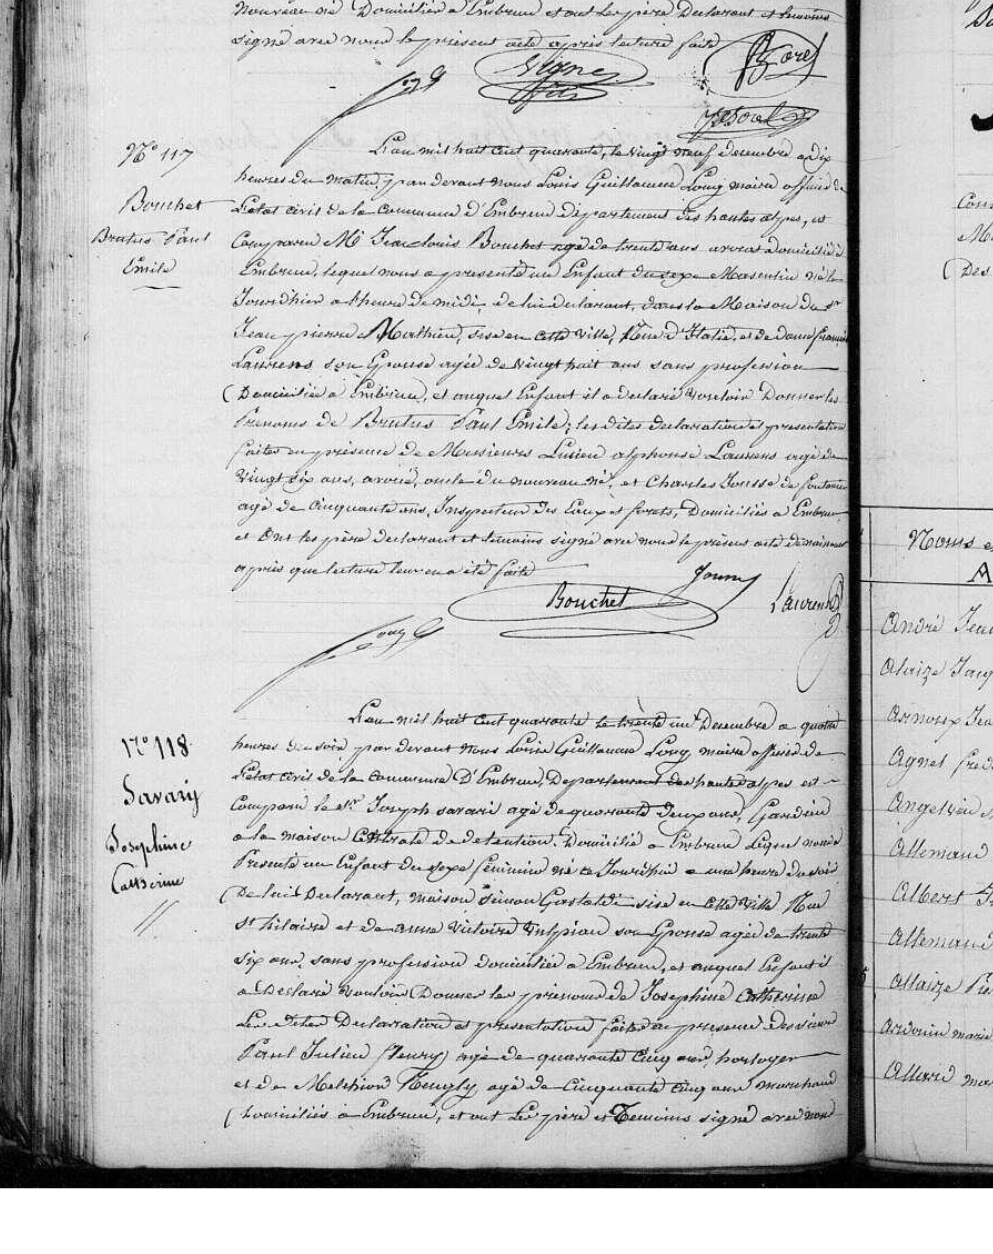 nouveau né Domiciliés à Embrun et ont les père Declarant et temoins
signé avec nous le présent acte après lecture faite
Vigne
fils
Borel
Borel
N° 117
Bouchet
Brutus Paul
Emile
L'an mil huit cent quarante, le vingt neuf decembre à dix
heures du matin, pardevant nous Louis Guillaume Long maire officier de
L'etat civil de la Commune d'Embrun département des hautes alpes, est
Comparu Mr Jean louis Bouchet agé de trente ans avocat domicilié à
Embrun, lequel nous a presenté un Enfant du sexe Masculin né le
Jourd'hier a l'heure de midi, de lui declarant, dans la Maison du Sr
Jean pierre Mathieu, sise en cette ville, Rue d'Italie, et de dame
Laurens son Epouse agée de vingt huit ans sans profession
Domiciliée à Embrun, et auquel Enfant il a declaré vouloir Donner les
Prenoms de Brutus Paul Emile; les dites declaration et presentation
faites en présence de Messieurs Lucien alphonse Laurens agé de
vingt six ans, avoué, oncle du nouveau né, et Charles Jousse de
agé de Cinquante ans, Inspecteur des Eaux et forets, Domiciliés a Embrun
et Ont les père declarant et temoins signé avec nous le présent acte de naissance
après que lecture leur en a été faite
Bouchet
Laurens
Long
N° 118
Savary
Josephine
Catherine
L'an mil huit cent quarante le trente un Decembre a quatre
heures du soir pardevant nous Louis Guillaume Long maire officier de
L'etat civil de la Commune D'Embrun, Departement des hautes alpes est
Comparu le Sr Joseph savari agé de quarante deux ans, Gardien
a la maison Centrale de detention, Domicilié a Embrun Lequel nous a
Presenté un Enfant du sexe féminin né ce Jourd'hui a une heure du soir
De lui Declarant, maison Simon Gastaldi sise en cette ville Rue
St hilaire et de anne victoire Vulpian son Epouse agée de trente
six ans, sans profession domiciliée à Embrun, et auquel Enfant il
a Declaré vouloir Donner les prenoms de Josephine Catherine
Les dites Declaration et presentation faites en presence des sieurs
Paul Julien fleury agé de quarante Cinq ans, horloger
et de Melchior agé de Cinquante Cinq ans marchand
Domiciliés à Embrun, et ont Les père et Temoins signé avec nous
Noms
A
André
Alaize
Arnoux
Agnel
Angelvin
Allemand
Albert
Allemand
Allaize
Ardouin marie
Allard